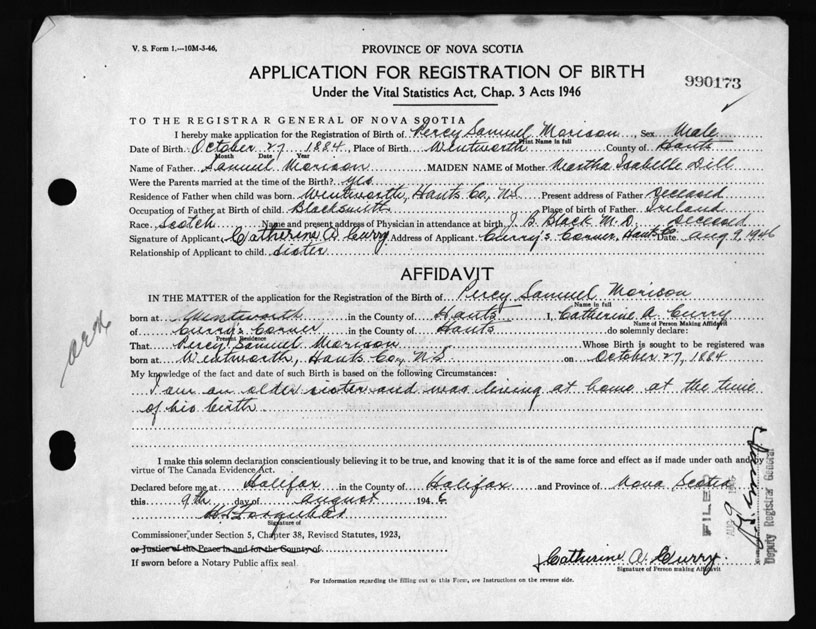 V. S. Form 1.—10M-3-46.
PROVINCE OF NOVA SCOTIA
APPLICATION FOR REGISTRATION OF BIRTH
990173
Under the Vital Statistics Act, Chap. 3 Acts 1946
TO THE REGISTRAR GENERAL OF NOVA SCOTIA
I hereby make application for the Registration of Birth of Percy Samuel Morison, Sex Male
Print Name in full
Date of Birth October 27, 1884, Place of Birth Wentworth County of Hants
Month Date Year
Name of Father Samuel Morison MAIDEN NAME of Mother Martha Isabelle Dill
Were the Parents married at the time of the Birth? yes
Residence of Father when child was born Wentworth, Hants Co, N.S. Present address of Father Deceased
Occupation of Father at Birth of child Blacksmith Place of birth of Father Ireland
Race Scotch Name and present address of Physician in attendance at birth J. B. Black M.D. Deceased
Signature of Applicant Catherine A. Curry Address of Applicant Curry's Corner, Hants Co Date Aug 9, 1946
Relationship of Applicant to child sister
AFFIDAVIT
IN THE MATTER of the application for the Registration of the Birth of Percy Samuel Morison
Name in full
born at Wentworth in the County of Hants I, Catherine A. Curry
Name of Person Making Affidavit
of Curry's Corner in the County of Hants do solemnly declare:
Present Residence
That Percy Samuel Morison Whose Birth is sought to be registered was
born at Wentworth, Hants Co, N.S. on October 27, 1884
My knowledge of the fact and date of such Birth is based on the following Circumstances:
I am an older sister and was living at home at the time
of his birth
I make this solemn declaration conscientiously believing it to be true, and knowing that it is of the same force and effect as if made under oath and by
virtue of The Canada Evidence Act.
Declared before me at Halifax in the County of Halifax and Province of Nova Scotia
this 9th day of August 1946
Signature of
Commissioner under Section 5, Chapter 38, Revised Statutes, 1923,
or Justice of the Peace in and for the County of
If sworn before a Notary Public affix seal
Catherine A. Curry
Signature of Person making Affidavit
For Information regarding the filling out of this Form, see Instructions on the reverse side.
FILED
AUG 9 1946
Deputy Registrar General